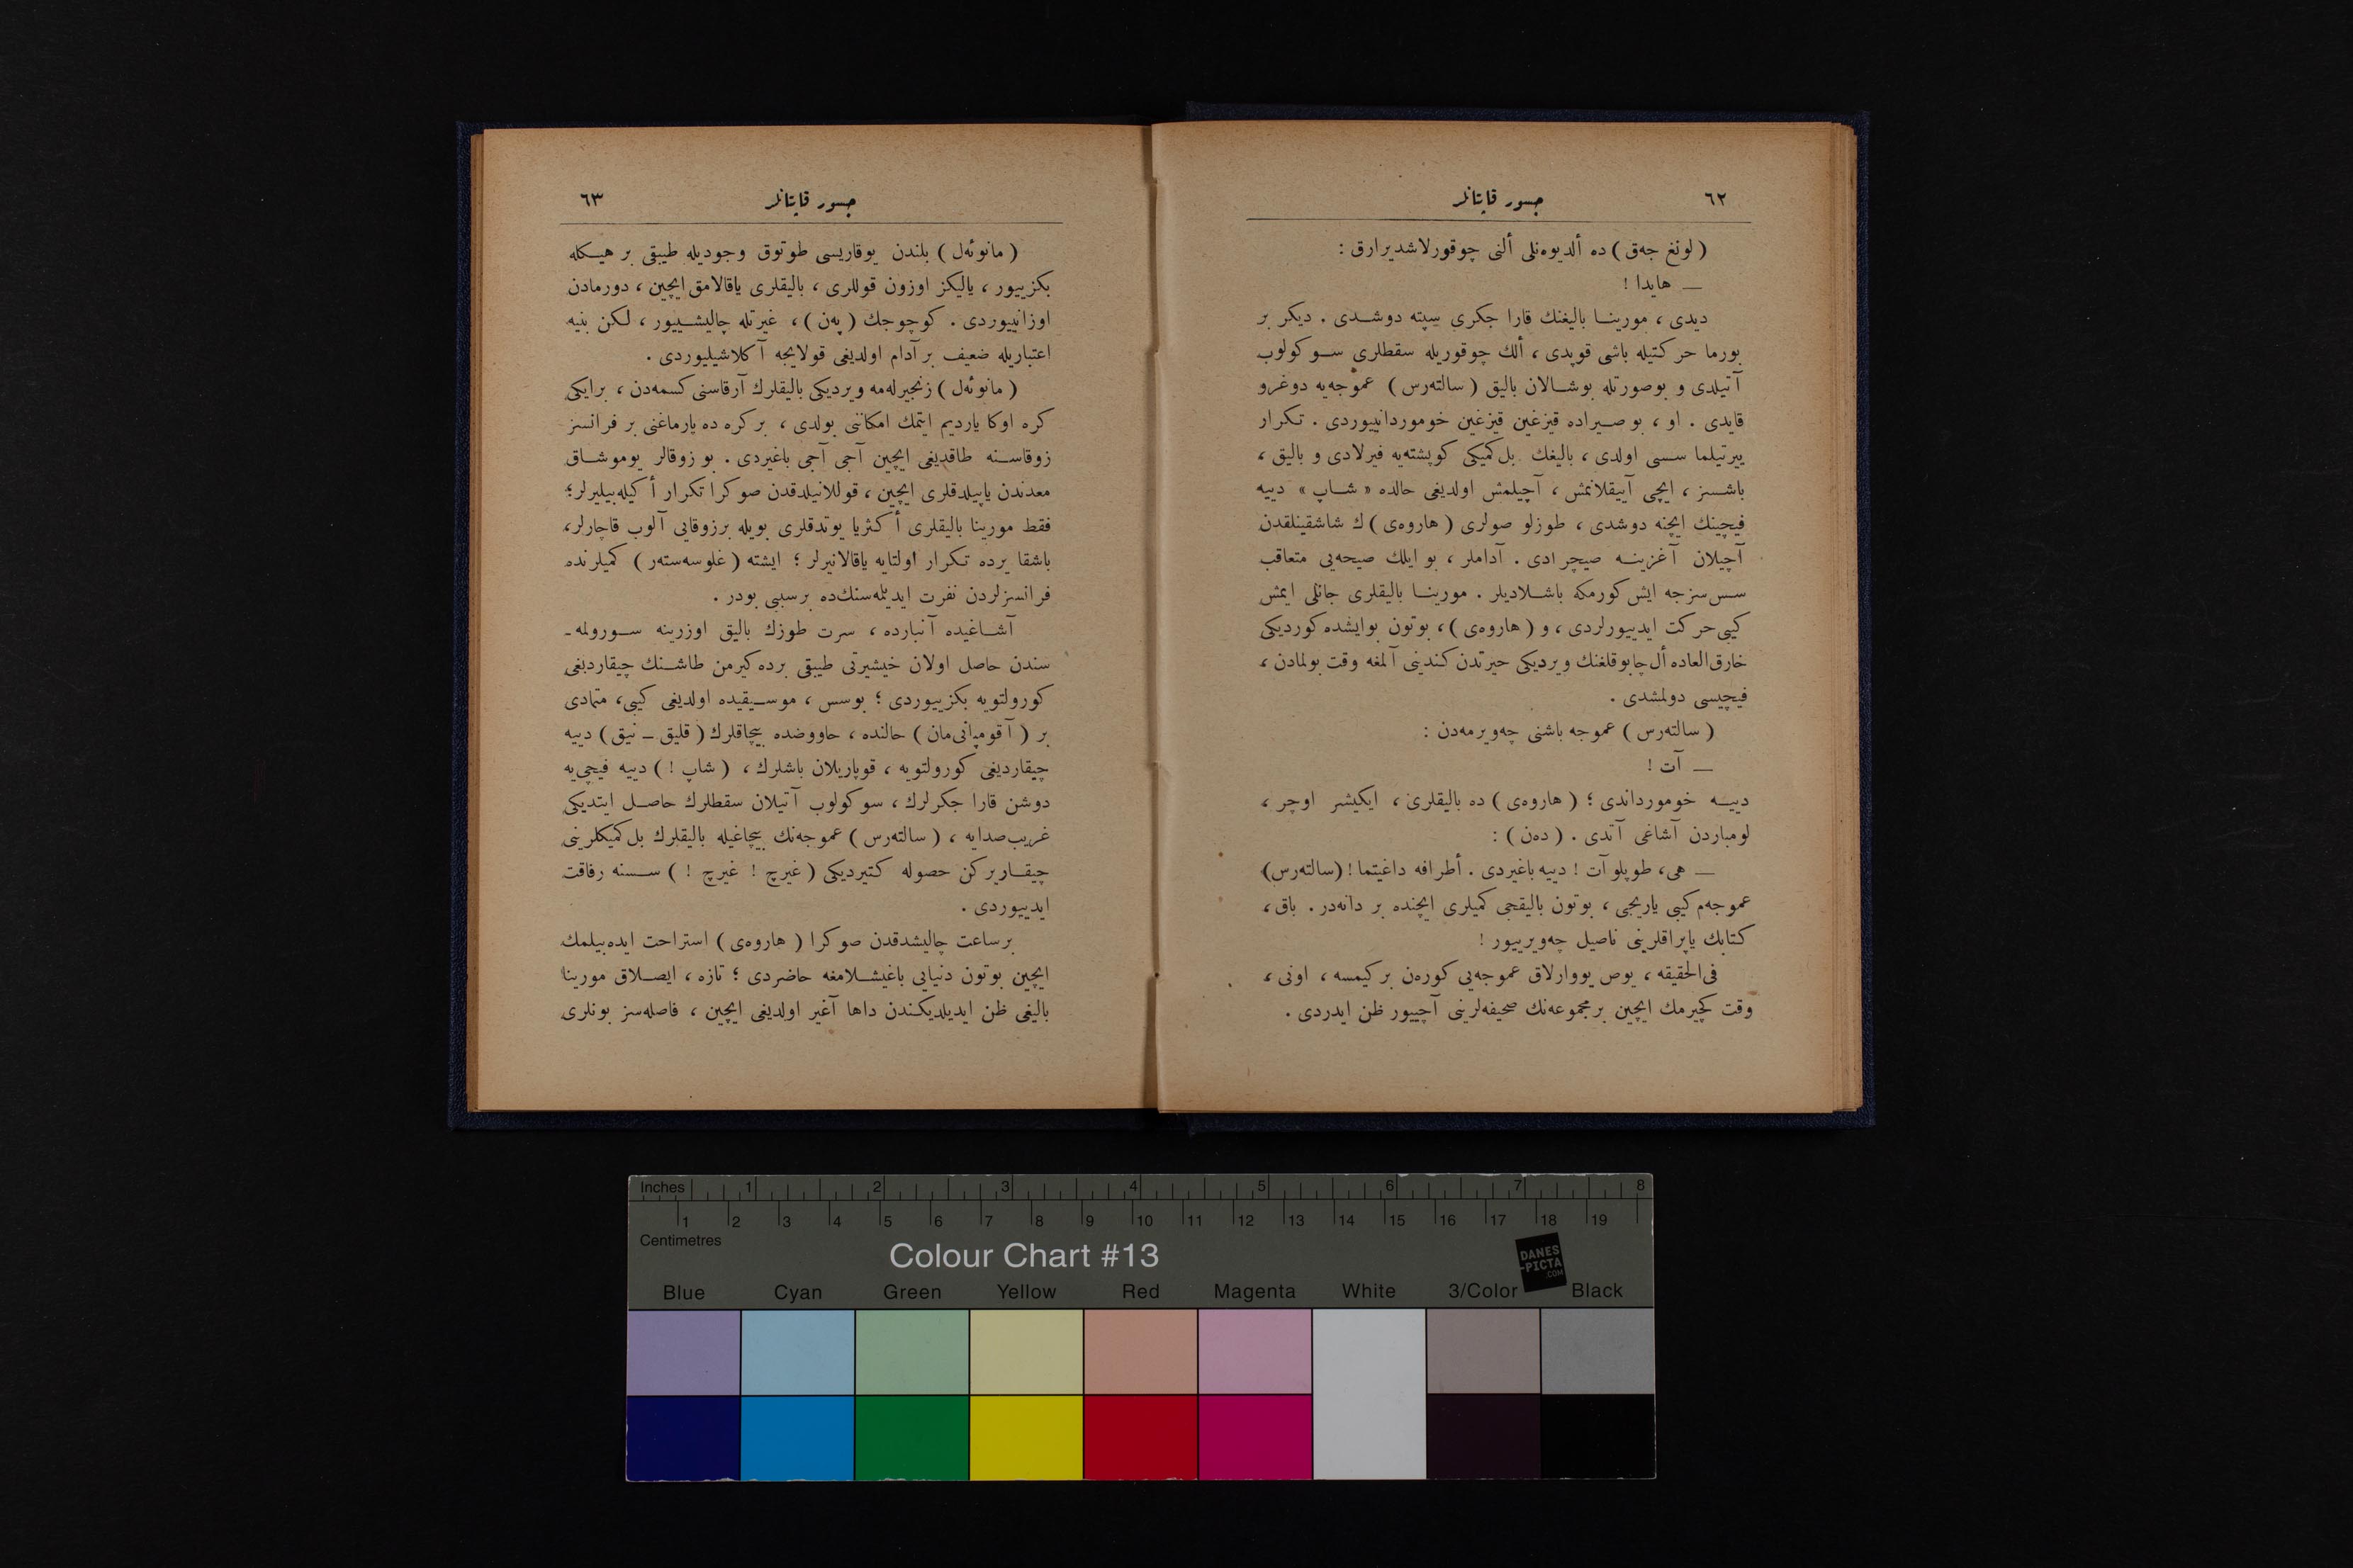 ٦٢
جسور قاپتانلر
( لونغ جه‌ق ) ده ألدیوه‌نلی ألنی چوقورلاشدیرارق :
— هایدا !
دیدی ، مورینا بالیغنك قارا جکری سپته دوشدی . دیکر بر
بورما حرکتیله باشی قوپدی ، ألك چوقوریله سقطلری سوکولوب
آتیلدی و بوصورتله بوشالان بالیق ( سالته‌رس ) عموجه‌یه دوغرو
قایدی . او ، بو صیراده قیزغین قیزغین خومورداناییوردی . تکرار
ییرتیلما سسی اولدی ، بالیغك بل کمیکی کوپشته‌یه فیرلادی و بالیق ،
باشسز ، ایچی آییقلانمش ، آچیلمش اولدیغی حالده « شاپ » دییه
فیچینك ایچنه دوشدی ، طوزلو صولری ( هاروه‌ی ) ك شاشقینلقدن
آچیلان آغزینه صیچرادی . آداملر ، بو ایلك صیحه‌یی متعاقب
سس‌سزجه ایش کورمکه باشلادیلر . مورینا بالیقلری جانلی ایمش
کیبی حرکت ایدییورلردی ، و ( هاروه‌ی ) ، بوتون بوایشده کوردیکی
خارق‌العاده أل چابوقلغنك ویردیکی حیرتدن کندینی آلمغه وقت بولمادن ،
فیچیسی دولمشدی .
( سالته‌رس ) عموجه باشنی چه‌ویرمه‌دن :
— آت !
دییه خومورداندی ؛ ( هاروه‌ی ) ده بالیقلری ، ایکیشر اوچر ،
لومباردن آشاغی آتدی . ( ده‌ن ) :
— هی ، طوپلو آت ! دییه باغیردی . أطرافه داغیتما ! ( سالته‌رس )
عموجه‌م کیبی یاریجی ، بوتون بالیقجی کمیلری ایچنده بر دانه‌در . باق ،
کتابك یاپراقلرینی ناصیل چه‌ویرییور !
فی‌الحقیقه ، بوص یووارلاق عموجه‌یی کوره‌ن بر کیمسه ، اونی ،
وقت کچیرمك ایچین بر مجموعه‌نك صحیفه‌لرینی آچییور ظن ایدردی .
٦٣
جسور قاپتانلر
( مانوئه‌ل ) بلندن یوقاریسی طوتوق وجودیله طیبقی بر هیکله
بکزییور ، یالیکز اوزون قوللری ، بالیقلری یاقالامق ایچین ، دورمادن
اوزانییوردی . کوچوجك ( په‌ن ) ، غیرتله چالیشییور ، لکن بنیه
اعتباریله ضعیف بر آدام اولدیغی قولایجه آکلاشیلیوردی .
( مانوئه‌ل ) زنجیرله‌مه ویردیکی بالیقلرك آرقاسنی کسمه‌دن ، برایکی
کره اوکا یاردیم ایتمك امکاننی بولدی ، بر کره ده پارماغنی بر فرانسز
زوقاسنه طاقدیغی ایچین آجی آجی باغیردی . بو زوقالر یوموشاق
معدندن یاپیلدقلری ایچین ، قوللانیلدقدن صوکرا تکرار أکیله‌بیلیرلر ؛
فقط مورینا بالیقلری أکثریا یوتدقلری بویله برزوقایی آلوب قاچارلر ،
باشقا یرده تکرار اولتایه یاقالانیرلر ؛ ایشته ( غلوسه‌سته‌ر ) کمیلرنده
فرانسزلردن نفرت ایدیلمه‌سنك‌ده برسببی بودر .
آشاغیده آنبارده ، سرت طوزك بالیق اوزرینه سورولمه ـ
سندن حاصل اولان خیشیرتی طیبقی برده‌کیرمن طاشنك چیقاردیغی
کورولتویه بکزییوردی ؛ بوسس ، موسیقیده اولدیغی کیبی ، متمادی
بر ( آقومپانی‌مان ) حالنده ، حاووضده بیچاقلرك ( قلیق ـ نیق ) دییه
چیقاردیغی کورولتویه ، قوپاریلان باشلرك ، ( شاپ ! ) دییه فیچی‌یه
دوشن قارا جکرلرك ، سوکولوب آتیلان سقطلرك حاصل ایتدیکی
غریب‌صدایه ، ( سالته‌رس ) عموجه‌نك بیچاغیله بالیقلرك بل کمیکلرینی
چیقاریرکن حصوله کتیردیکی ( غیرچ ! غیرچ ! ) سسنه رفاقت
ایدییوردی .
برساعت چالیشدقدن صوکرا ( هاروه‌ی ) استراحت ایده‌بیلمك
ایچین بوتون دنیایی باغیشلامغه حاضردی ؛ تازه ، ایصلاق مورینا
بالیغی ظن ایدیلدیکندن داها آغیر اولدیغی ایچین ، فاصله‌سز بونلری
Inches 1 2 3 4 5 6 7 8
1 2 3 4 5 6 7 8 9 10 11 12 13 14 15 16 17 18 19
Centimetres
Colour Chart #13
DANES
-PICTA
.COM
Blue Cyan Green Yellow Red Magenta White 3/Color Black